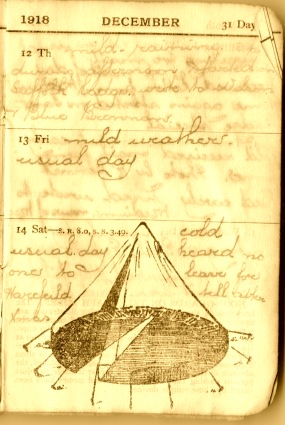 1918 DECEMBER 31 Day
12 Th mild. raining
during afternoon
wrote to
13 Fri mild weather.
usual day
14 Sat—S. R. 8.0, S. S. 3.49. cold
usual day heard no
ones to leave for
Harefield till after
Xmas